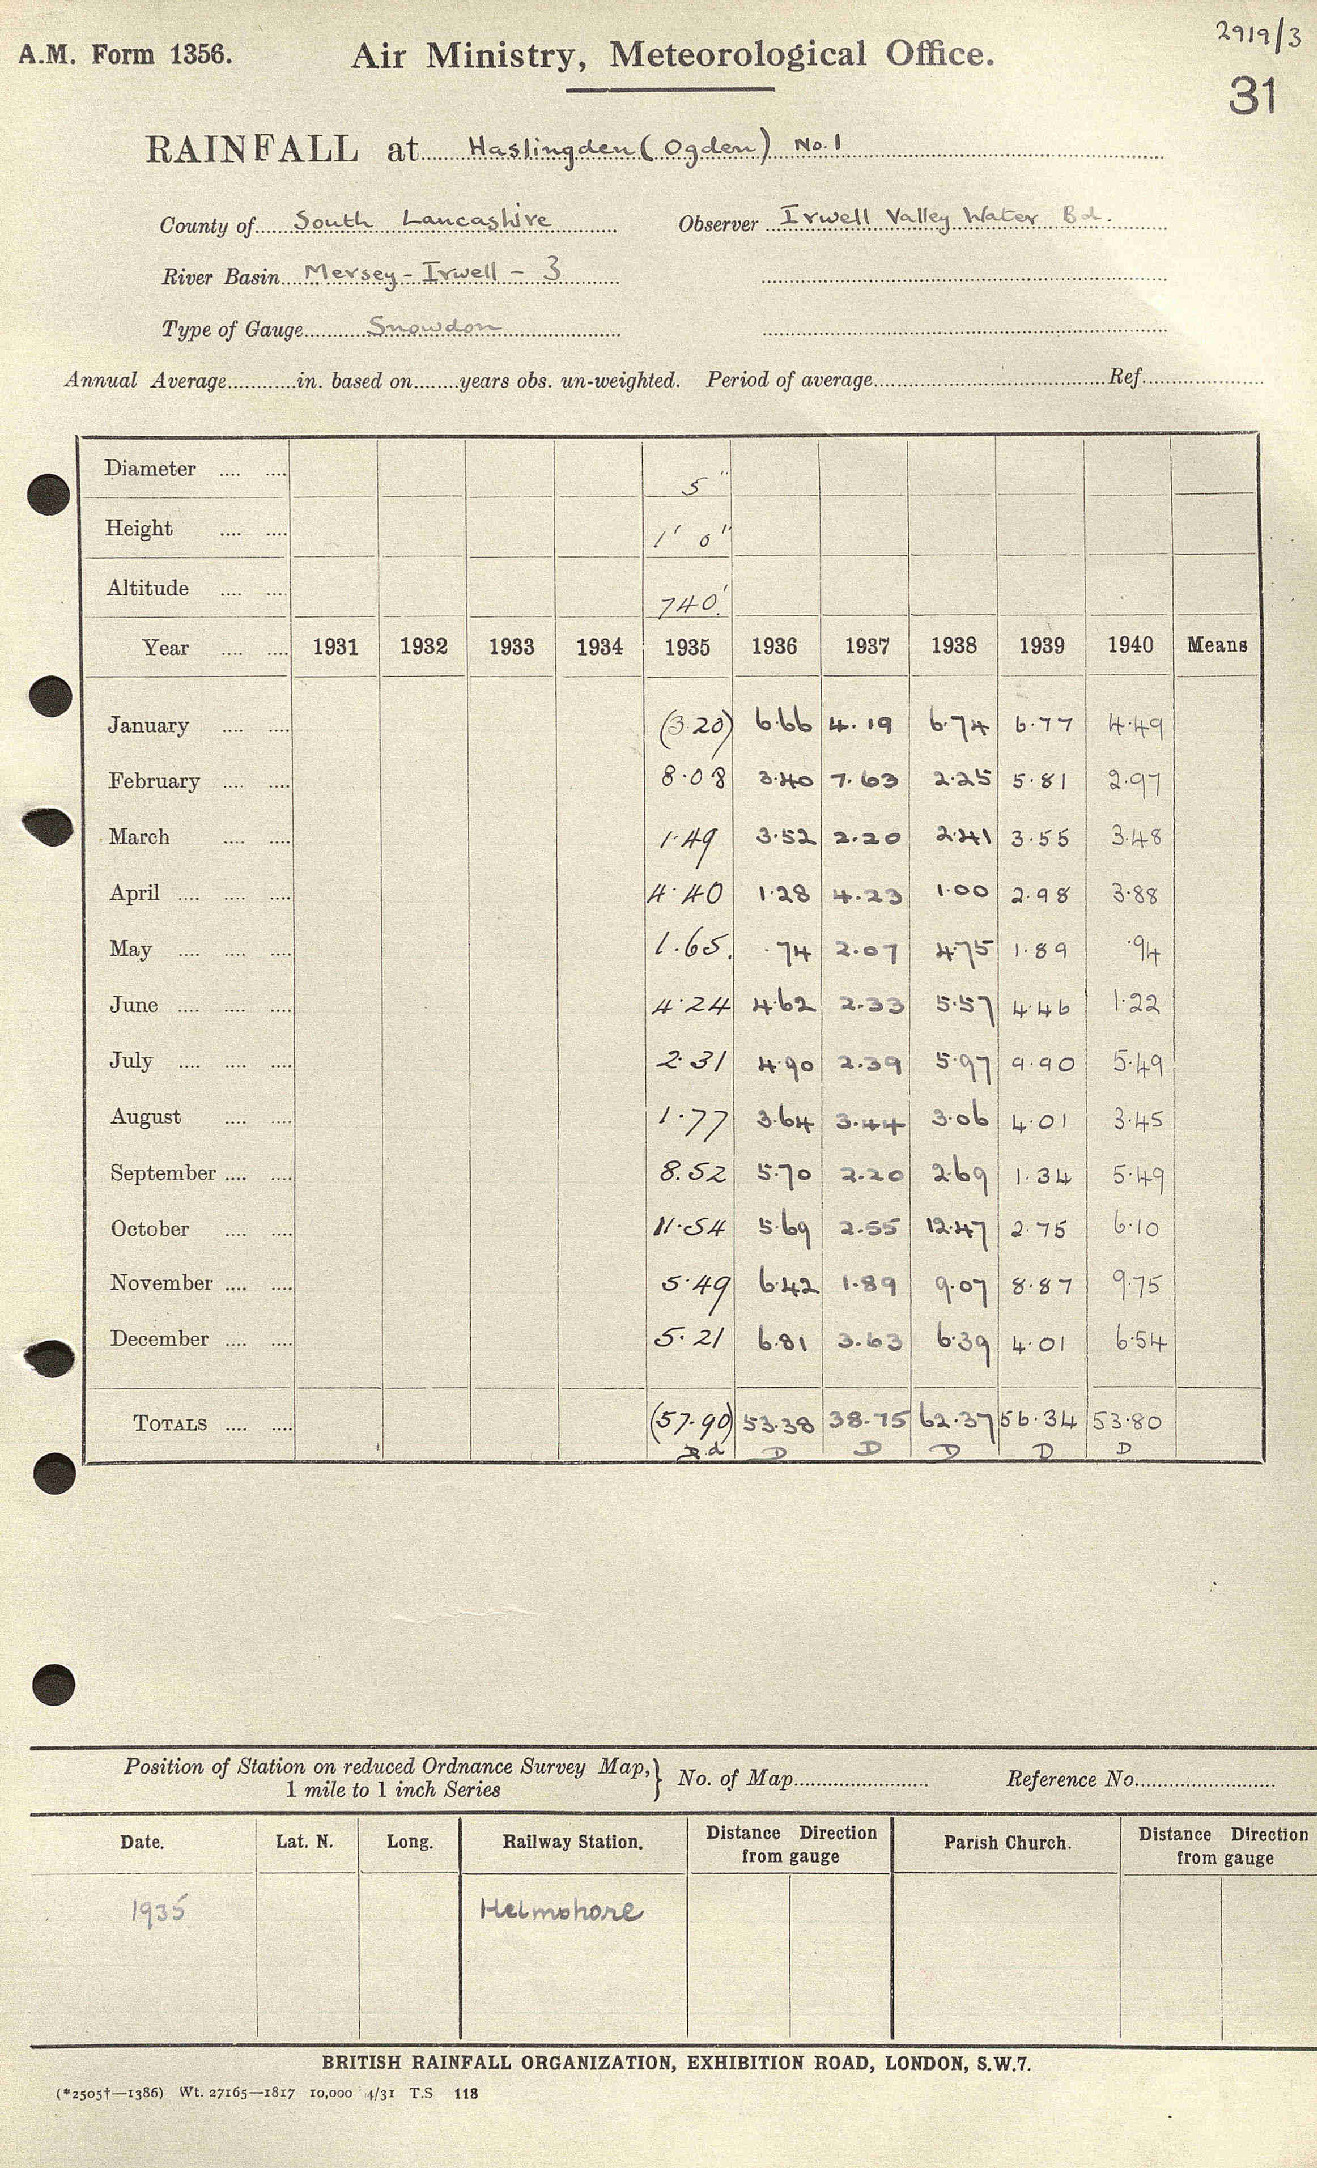 2919/3
A.M. Form 1356. Air Ministry, Meteorological Office.
31
RAINFALL at Haslingden (Ogden) No. 1
County of South Lancashire Observer Irwell Valley Water Bd.
River Basin Mersey - Irwell - 3
Type of Gauge Snowdon
Annual Average in. based on years obs. un-weighted. Period of average Ref.
Diameter 5"
Height 1' 0"
Altitude 740'
Year 1931 1932 1933 1934 1935 1936 1937 1938 1939 1940 Means
January (3.20) 6.66 4.19 6.74 6.77 4.49
February 8.08 3.40 7.63 2.25 5.81 2.97
March 1.49 3.52 2.20 2.41 3.55 3.48
April 4.40 1.28 4.23 1.00 2.98 3.88
May 1.65 .74 2.07 4.75 1.89 .94
June 4.24 4.62 2.33 5.57 4.46 1.22
July 2.31 4.90 2.39 5.97 9.90 5.49
August 1.77 3.64 3.44 3.06 4.01 3.45
September 8.52 5.70 2.20 2.69 1.34 5.49
October 11.54 5.69 2.55 12.47 2.75 6.10
November 5.49 6.42 1.89 9.07 8.87 9.75
December 5.21 6.81 3.63 6.39 4.01 6.54
TOTALS (57.90) 53.38 38.75 62.37 56.34 53.80
D.d D D D D D
Position of Station on reduced Ordnance Survey Map, } No. of Map Reference No.
1 mile to 1 inch Series
Date. Lat. N. Long. Railway Station. Distance Direction from gauge Parish Church. Distance Direction from gauge
1935 Helmshore
BRITISH RAINFALL ORGANIZATION, EXHIBITION ROAD, LONDON, S.W.7.
(*2505†—1386) Wt. 27165—1817 10,000 4/31 T.S 118